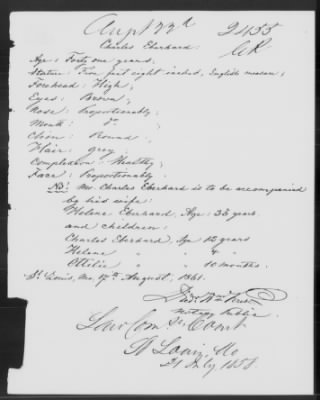 Augt 22d
24155
Charles Eberhard:
Age: Forty one years;
Stature: Five feet eight inches, English measure;
Forehead: High;
Eyes: Brown;
Nose: Proportionably;
Mouth: do.
Chin: Round
Hair: grey.
Complexion: Healthy;
Face: Proportionably.
NB: Mr. Charles Eberhard is to be accompanied
by his wife:
Helene Eberhard, Age: 33 years.
and children:
Charles Eberhard, Age 12 years
Helene " " 4 "
Ottilie " " 10 months.
St. Louis, Mo. 17th August, 1861.
Notary Public
Law Com Ct
St Louis, Mo
21 July 1858